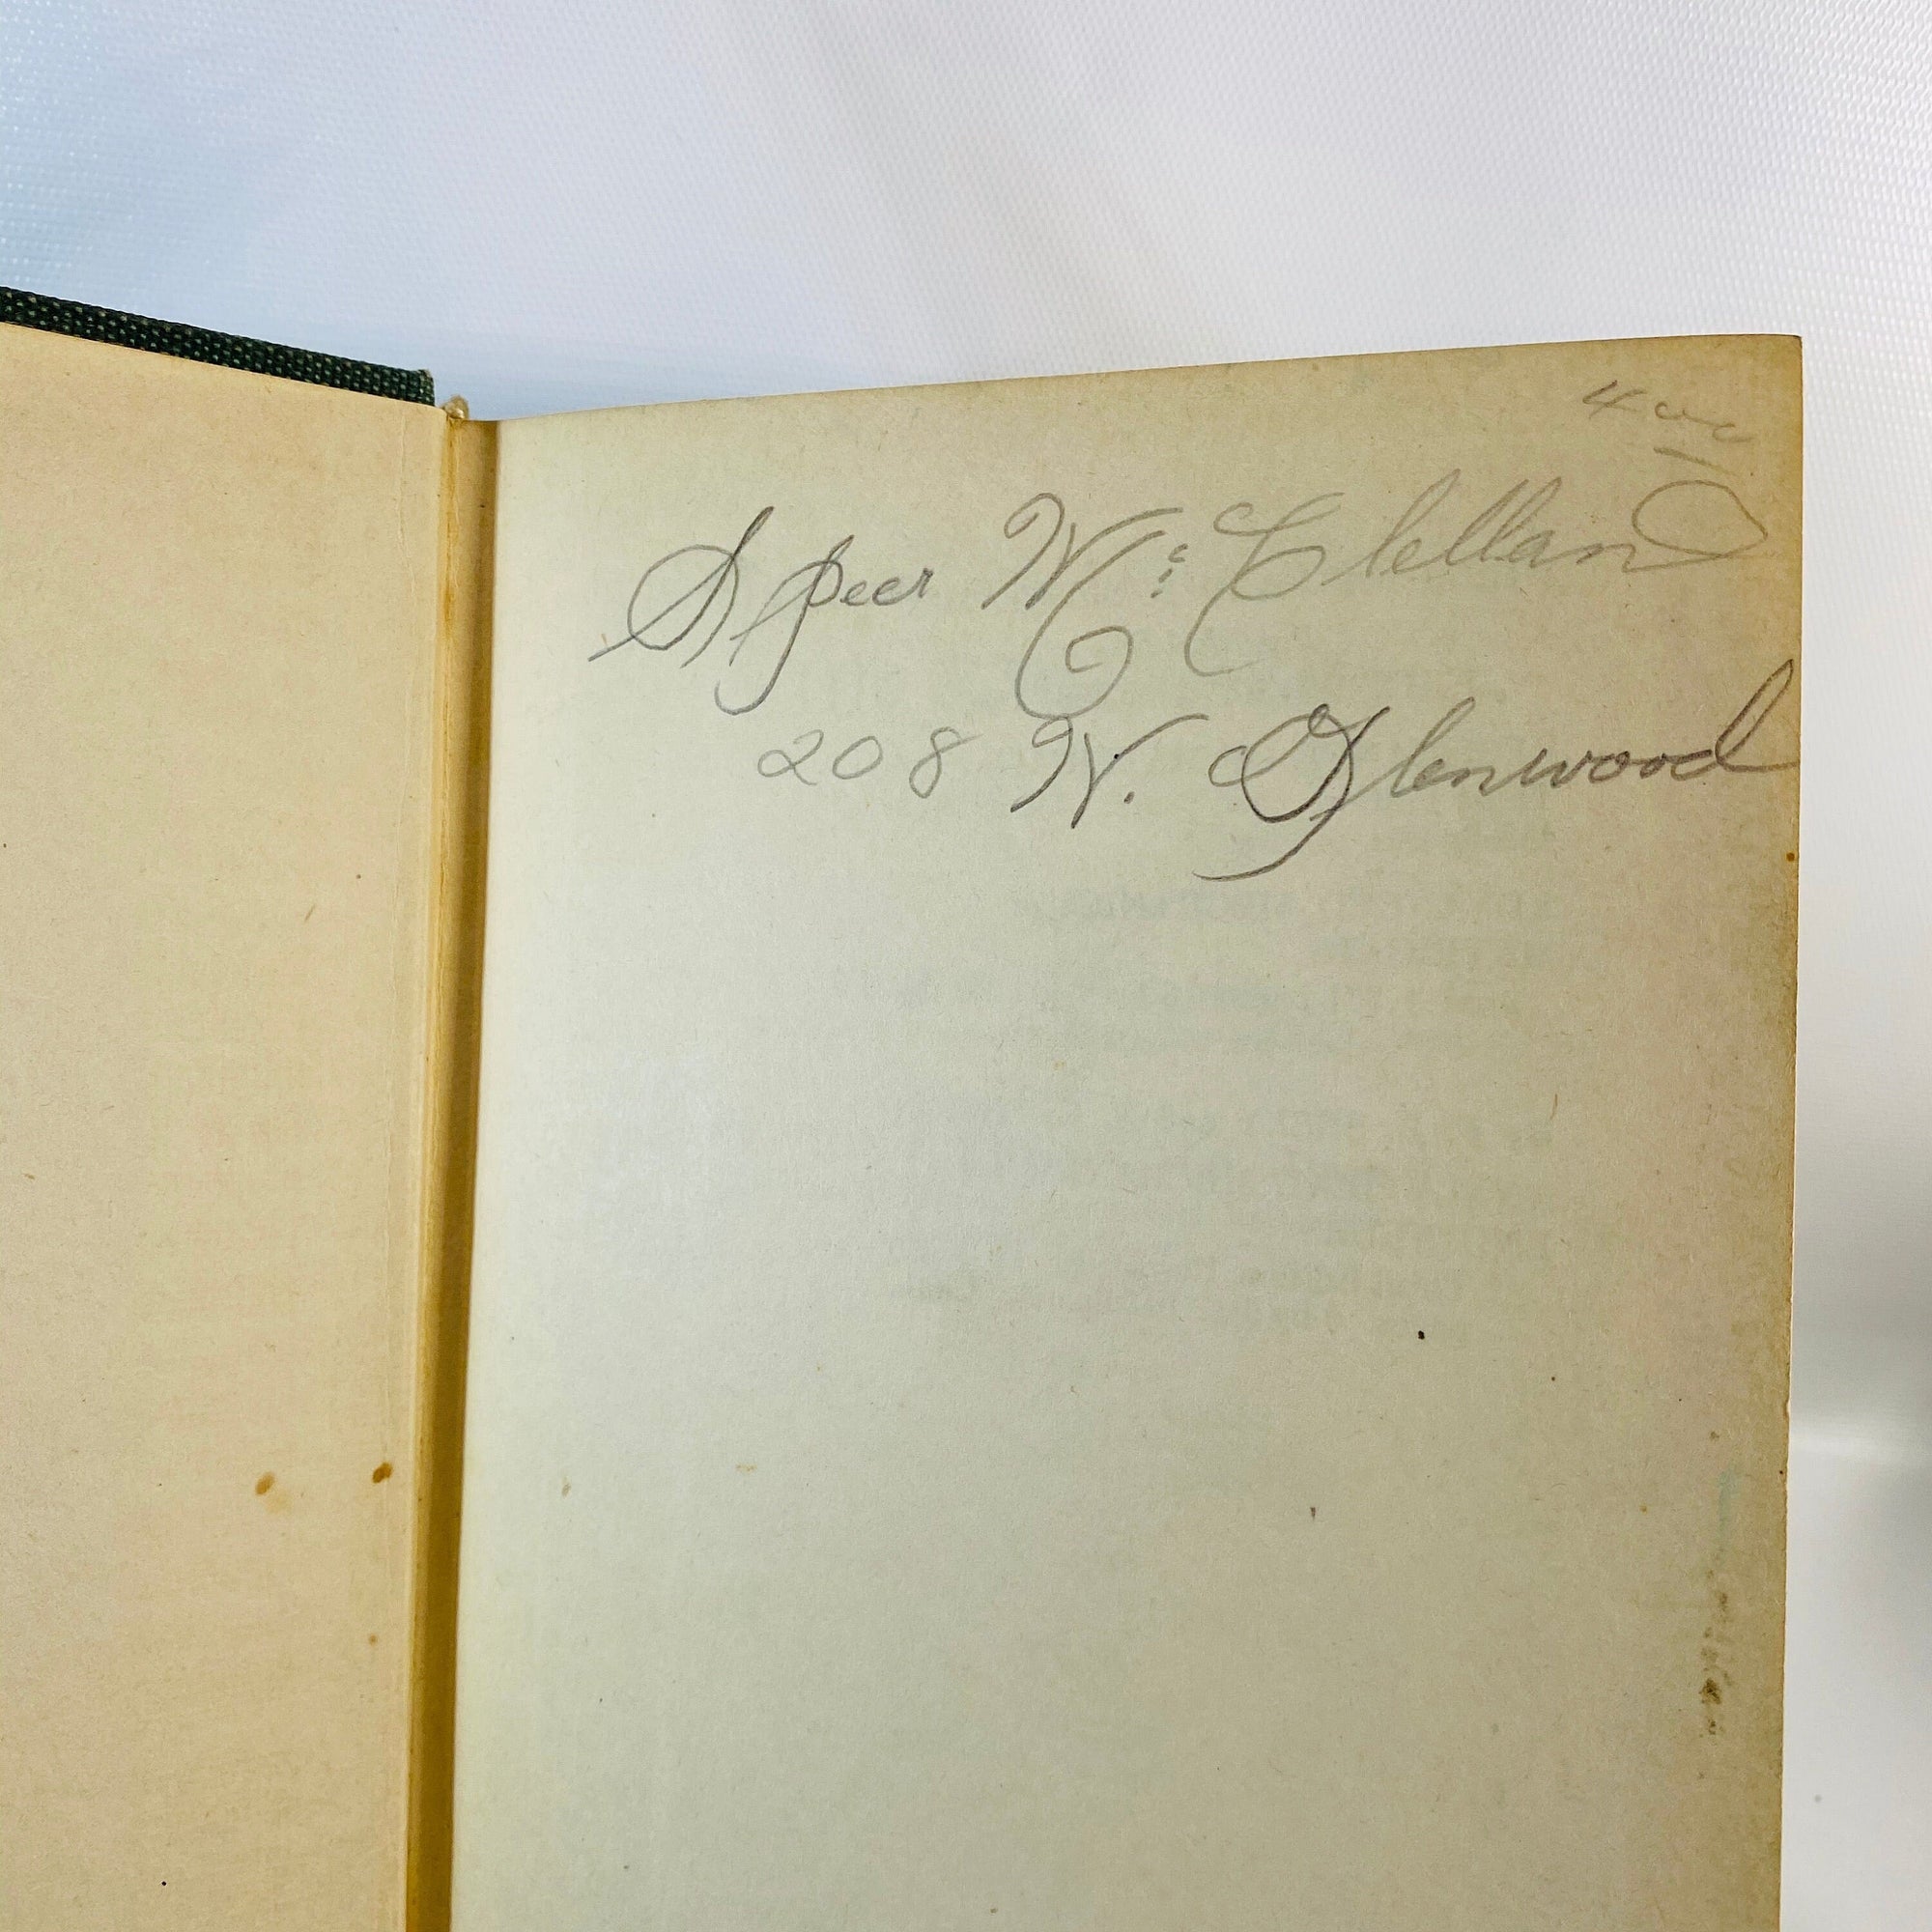 4 00
Speer Mc Clelland
208 N. Glenwood